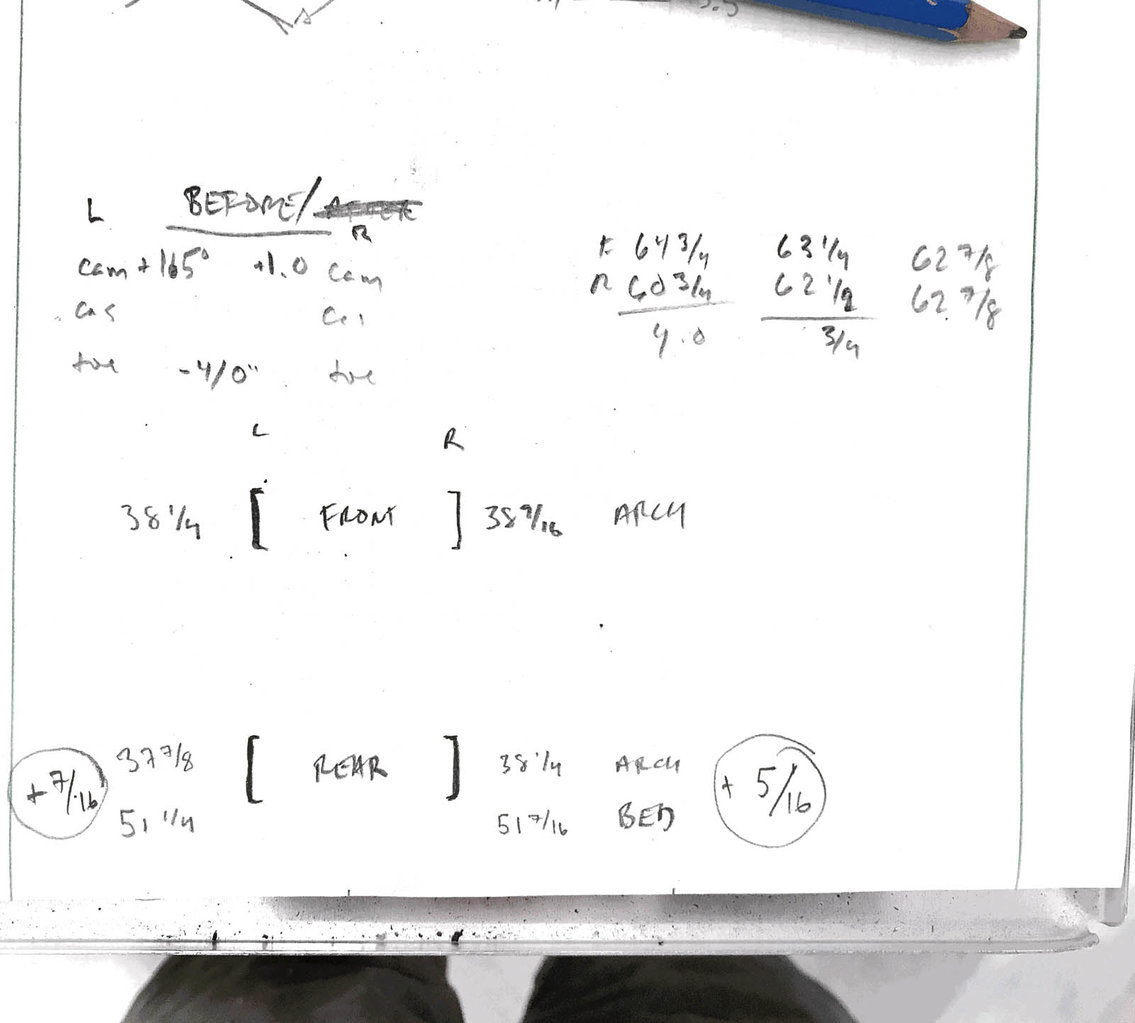 L BEFORE/
R
cam + 1.65° +1.0 cam
cas cas
toe -4/0" toe
F 64 3/4 63 1/4 62 7/8
R 60 3/4 62 1/2 62 7/8
4.0 3/4
L R
38 1/4 [ FRONT ] 38 7/16 ARCH
37 7/8 [ REAR ] 38 1/4 ARCH
+ 7/16 + 5/16
51 1/4 51 7/16 BED